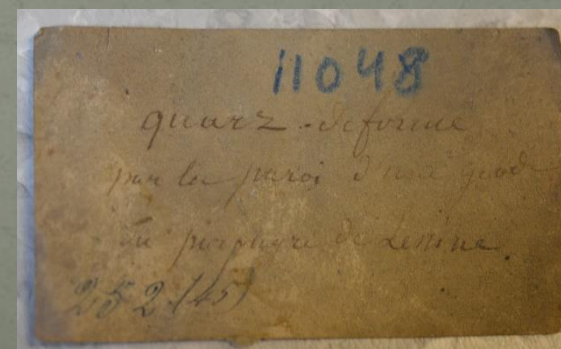 11048
quarz - deformé
par la paroi d'une géode
du porphyre de Lessine.
252.(45)